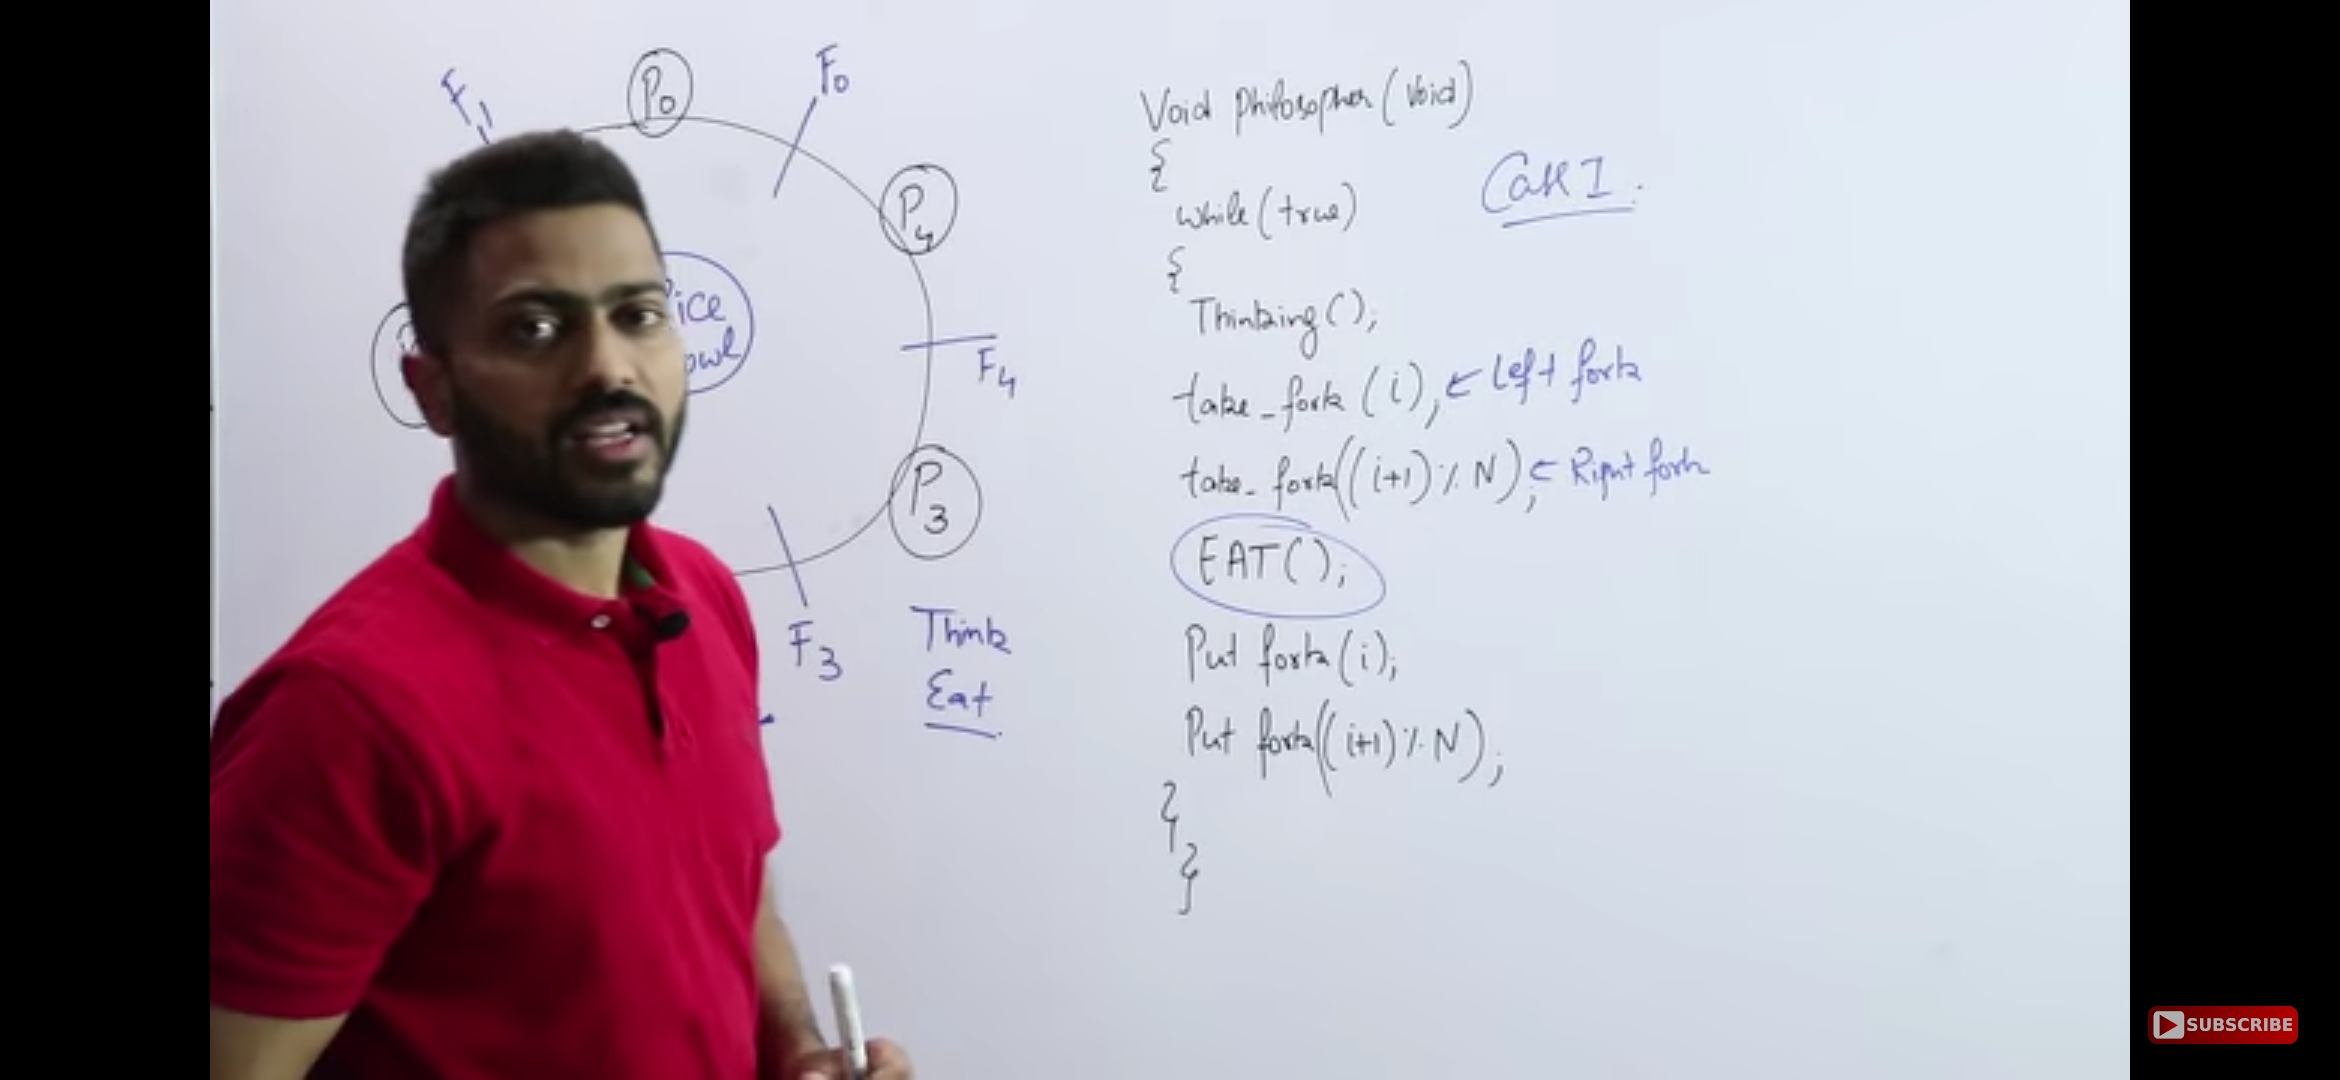 F1
P0
F0
P4
ice
owl
F4
P3
F3
Think
Eat
Void philosopher (void)
{
Case 1.
while (true)
{
Thinking();
take_fork (i); ← Left fork
take_fork((i+1) % N); ← Right fork
EAT();
Put fork (i);
Put fork((i+1) % N);
}
}
SUBSCRIBE